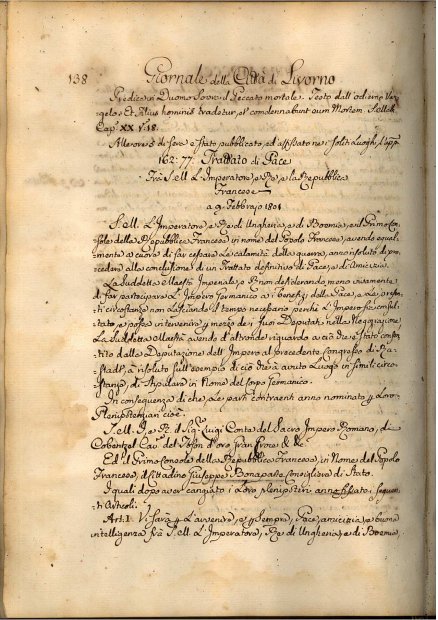 138 Giornale della Città di Livorno
Predica in Duomo Sovra il Peccato mortale. Testo dall'odierno Van-
gelo. Et Filius hominis tradetur, et comdennabunt eum Mortem. S. Matt.
Cap. XX v. 18.
Alle ore 5 di sera è stato pubblicato, ed affissato ne' soliti Luoghi, l'app.
162: 77. Trattato di Pace
Frà S. M. L'Imperatore, e Rè, e la Repubblica
Francese
a 9. Febbrajo 1801
S. M. L'Imperatore, e Rè di Ungheria, e di Boemia, ed il Primo Con-
sole della Repubblica Francese in nome del Popolo Francese, avendo egual-
mente a cuore di far cessare le calamità della guerra, anno risoluto di pro-
cedere alla conclusione di un Trattato definitivo di Pace, e di amicizia.
La suddetta Maestà Imperiale, e R. non desiderando meno vivamente
di far partecipare L'Impero Germanico a i benefizj della Pace, e Le presen-
ti circostanze non Lasciando il tempo necessario perchè L'Impero sia consul-
tato, e possa intervenire p mezzo de i suoi Deputati nella Negoziazione
La suddetta Maestà avendo d'altronde riguardo a ciò che è stato consen-
tito dalla Deputazione dell'Impero al precedente Congresso di Ra-
stadt, à risoluto sull'esempio di ciò che à avuto Luogo in simili circo-
stanze, di stipulare in Nome del Corpo Germanico.
In conseguenza di che, Le parti contraenti anno nominato p Loro
Plenipotenziarj cioè.
S. M. I. e R. il Sig. Luigi Conte del Sacro Impero Romano, di
Cobentzel Cav. del Toson d'oro Gran Croce & &c
Ed il Primo Console della Repubblica Francese, in Nome del Popolo
Francese, il Cittadino Giuseppe Bonaparte Consigliere di Stato.
I quali dopo aver cangiato i Loro plenipoteri anno fissato i seguen-
ti Articoli.
Art. I. Vi sarà p L'avvenire, e p sempre, Pace, amicizia, e buona
intelligenza frà S. M. L'Imperatore, Rè di Ungheria, e di Boemia,